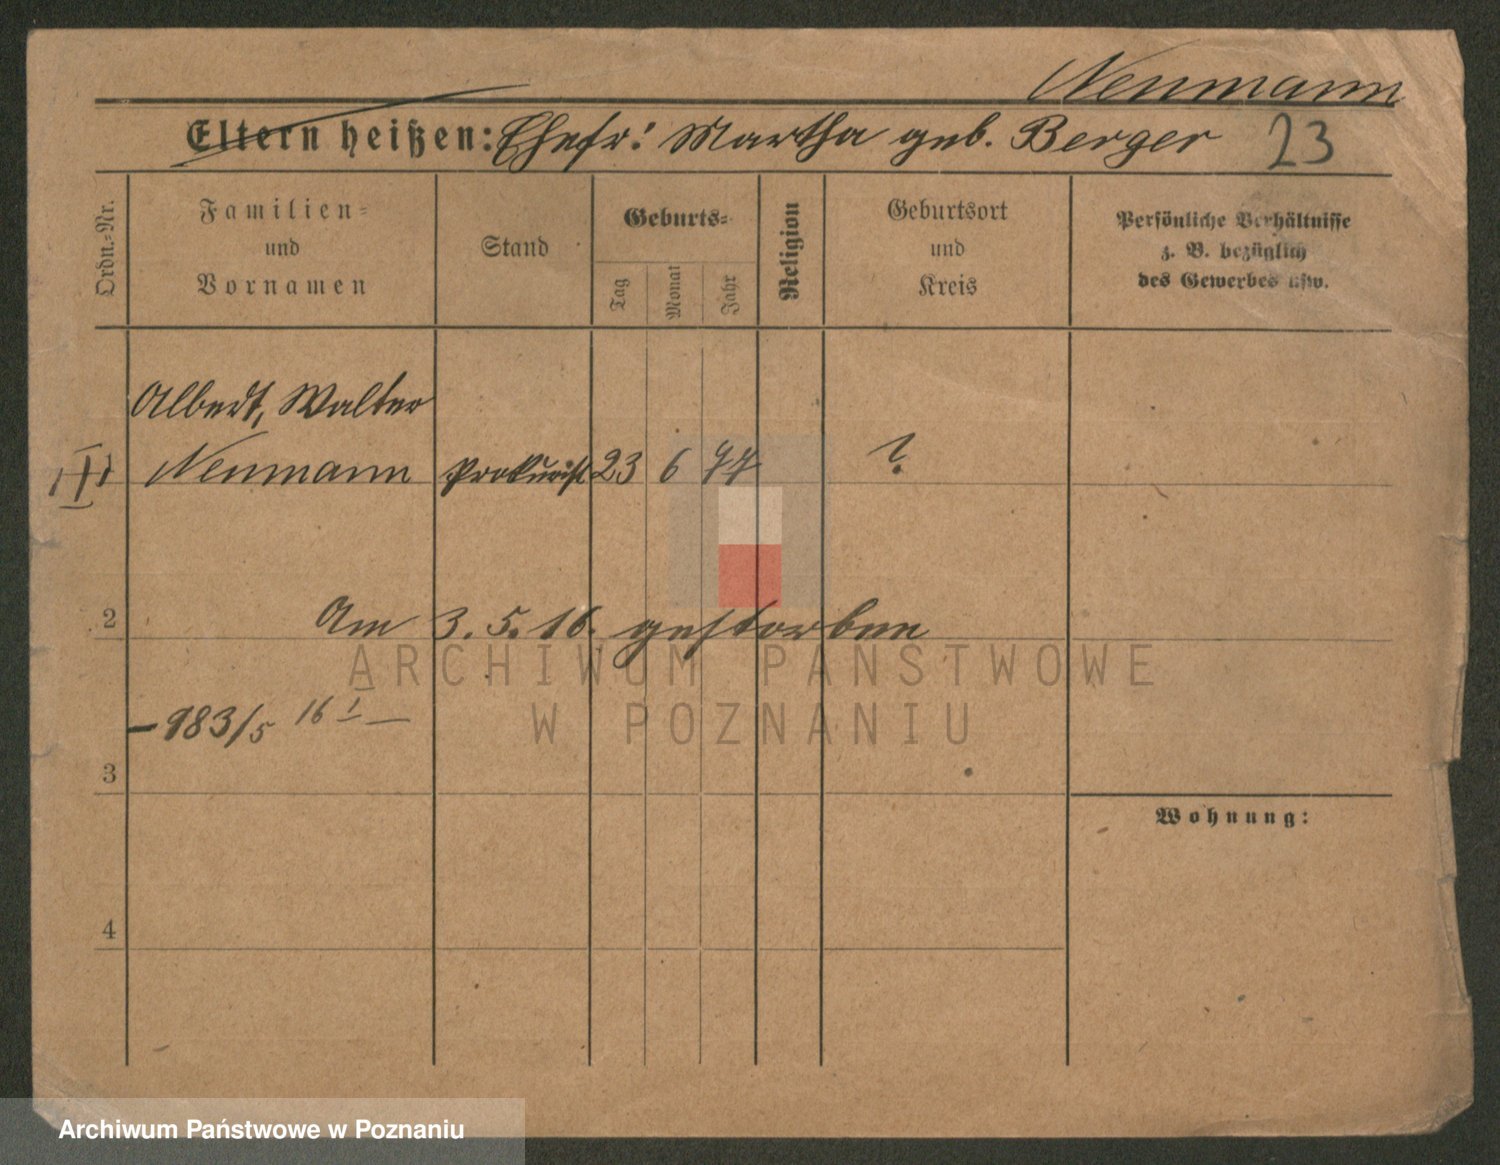 Neumann
Eltern heißen: Ehefr: Martha geb. Berger 23
Ordn.-Nr.
Familien-
und
Vornamen
Stand
Geburts-
Tag
Monat
Jahr
Religion
Geburtsort
und
Kreis
Persönliche Verhältnisse
z. B. bezüglich
des Gewerbes usw.
Albert, Walter
Neumann Prokurist 23 6 77 ?
2 Am 3.5.16. gestorben
ARCHIWUM PAŃSTWOWE
W POZNANIU
– 983/5 16 I –
3
Wohnung:
4
Archiwum Państwowe w Poznaniu